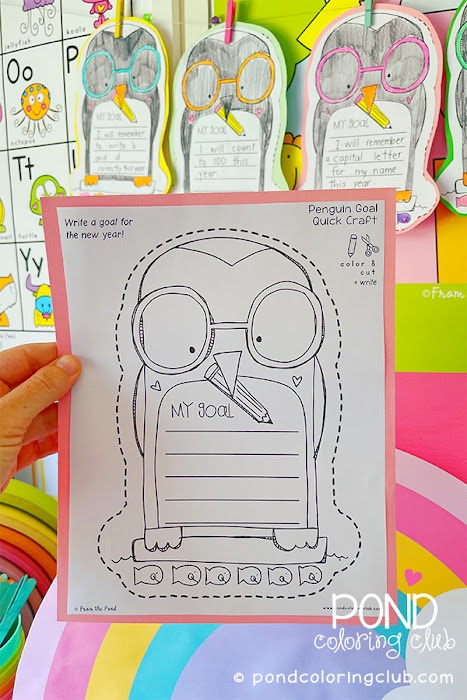 © pondcoloringclub.com
jellyfish
Oo
octopus
Tt
Yy
MY GOAL
I will remember
to write b
and d
correctly this year
MY GOAL
I will count
to 100 this
year.
MY GOAL
I will remember
a capital letter
for my name
this year
©From
Write a goal for
the new year!
Penguin Goal
Quick Craft
color &
cut
+ write
MY GOAL
© From the Pond
POND
coloring club
© pondcoloringclub.com